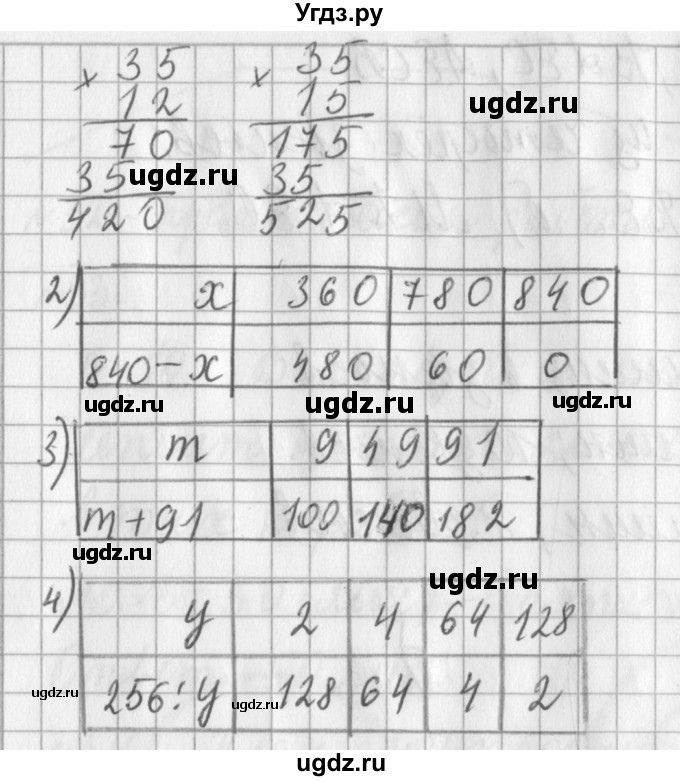 Угдз.ру
× 35 × 35
12 15
70 175
35 35
420 525
ugdz.ru
ugdz.ru
2) x 360 780 840
840 - x 480 60 0
ugdz.ru ugdz.ru ugdz.ru
3) m 9 49 91
m + 91 100 140 182
ugdz.ru
ugdz.ru
4) y 2 4 64 128
256 : y 128 64 4 2
ugdz.ru ugdz.ru ugdz.ru
ugdz.ru